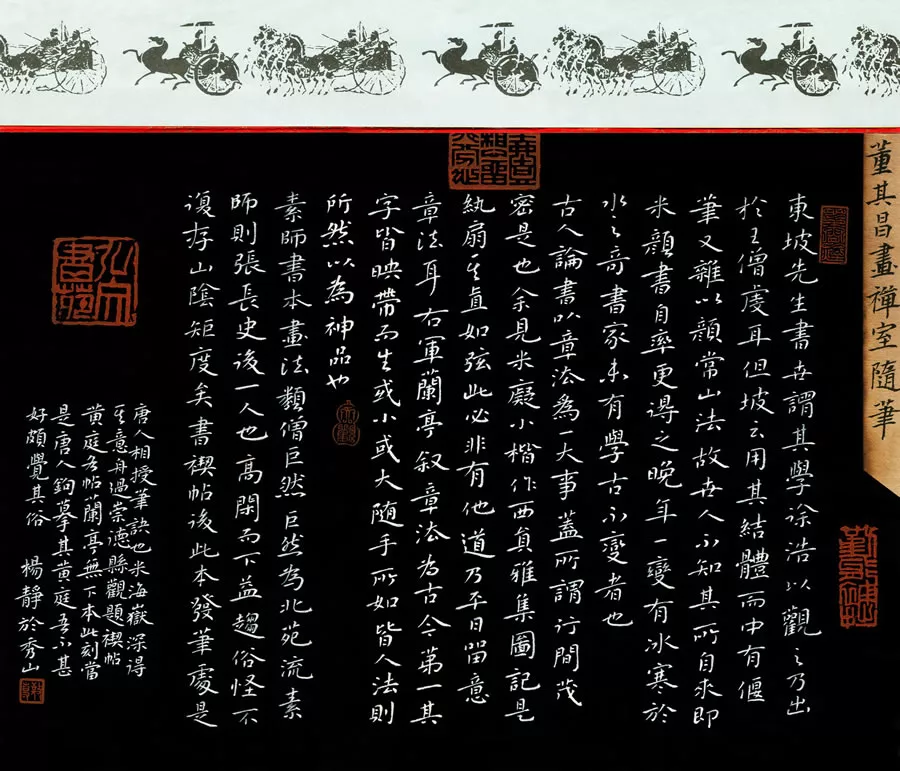 董其昌畫禪室隨筆
東坡先生書世謂其學徐浩以觀之乃出
於王僧虔耳但坡云用其結體而中有偃
筆又雜以顏常山法故世人不知其所自來即
米顏書自率更得之晚年一變有冰寒於
水之奇書家未有學古不變者也
古人論書以章法為一大事蓋所謂行間茂
密是也余見米癡小楷作西員雅集圖記是
紈扇其直如弦此必非有他道乃平日留意
章法耳右軍蘭亭叙章法為古今第一其
字皆映帶而生或小或大随手所如皆人法則
所然以為神品也
素師書本畫法類僧巨然巨然為北苑流素
師則張長史後一人也高閑而下益趨俗怪不
復存山陰矩度矣書禊帖後此本發筆處是
唐人相授筆訣也米海嶽深得
其意舟過崇德縣觀題禊帖
黃庭各帖蘭亭無下本此刻當
是唐人鉤摹其黃庭吾不甚
好頗覺其俗 楊靜於秀山